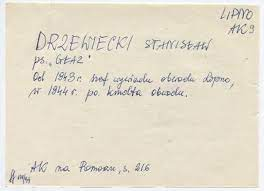 LIPNO
AK 9
DRZEWIECKI STANISŁAW
ps. „GŁAZ"
Od 1943 r. szef wywiadu obwodu Lipno,
w 1944 r. po. kmdta obwodu.
AK na Pomorzu, s. 216